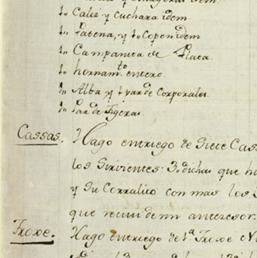 1„ Calis y cuchara idem
1„ Patena, y 1„ Copon idem
1„ Campanita de Plata
1„ hornam.to entero
1„ Alba y 1 par de Corporales
1„ Par de Tigeras
Cassas. Hago entriego de siete Cass
los Sirvientes: 3. dichas que hi
y su Corralito con mas los
que recivi de mi antecesor.
Troxe. Hago entriego de 1.a Troxe